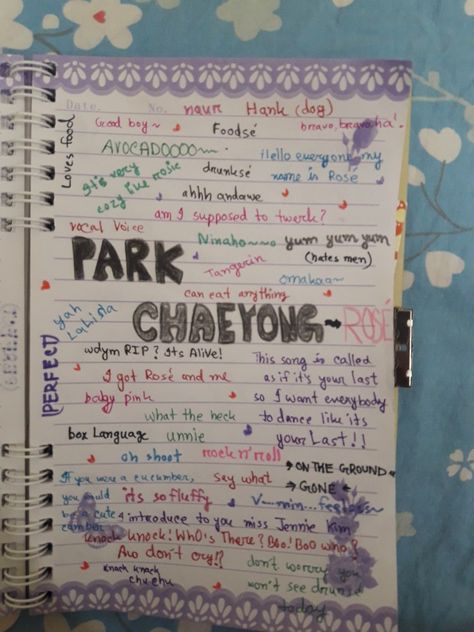 Date. No. naur Hank (dog)
Good boy~ Foodsé bravo, bravo ha!
Loves food
AVOCADOOOO~~ Hello everyone my
name is Rosé
It's very
cozy like rosie
drunksé
ahhh andawe
am I supposed to twerk?
vocal voice
Ninaho~~o yum yum yum
(hates men)
PARK
Tangerin
omakao~
can eat anything
yah
Lalisla
CHAEYONG~ROSÉ
PERFECT
wdym RIP? Its Alive! This song is called
I got Rosé and me as if it's your last
baby pink so I want everybody
what the heck to dance like its
box Language unnie your Last!!
oh shoot rock n' roll → ON THE GROUND
→ GONE
If you were a cucumber, say what
you would its so fluffy
be a cute
introduce to you miss Jennie Kim
Knock Knock! WHO's There? Boo! Boo who?
Aw don't cry!?
don't worry you
won't see drunsé
today
Knack knack
chu chu